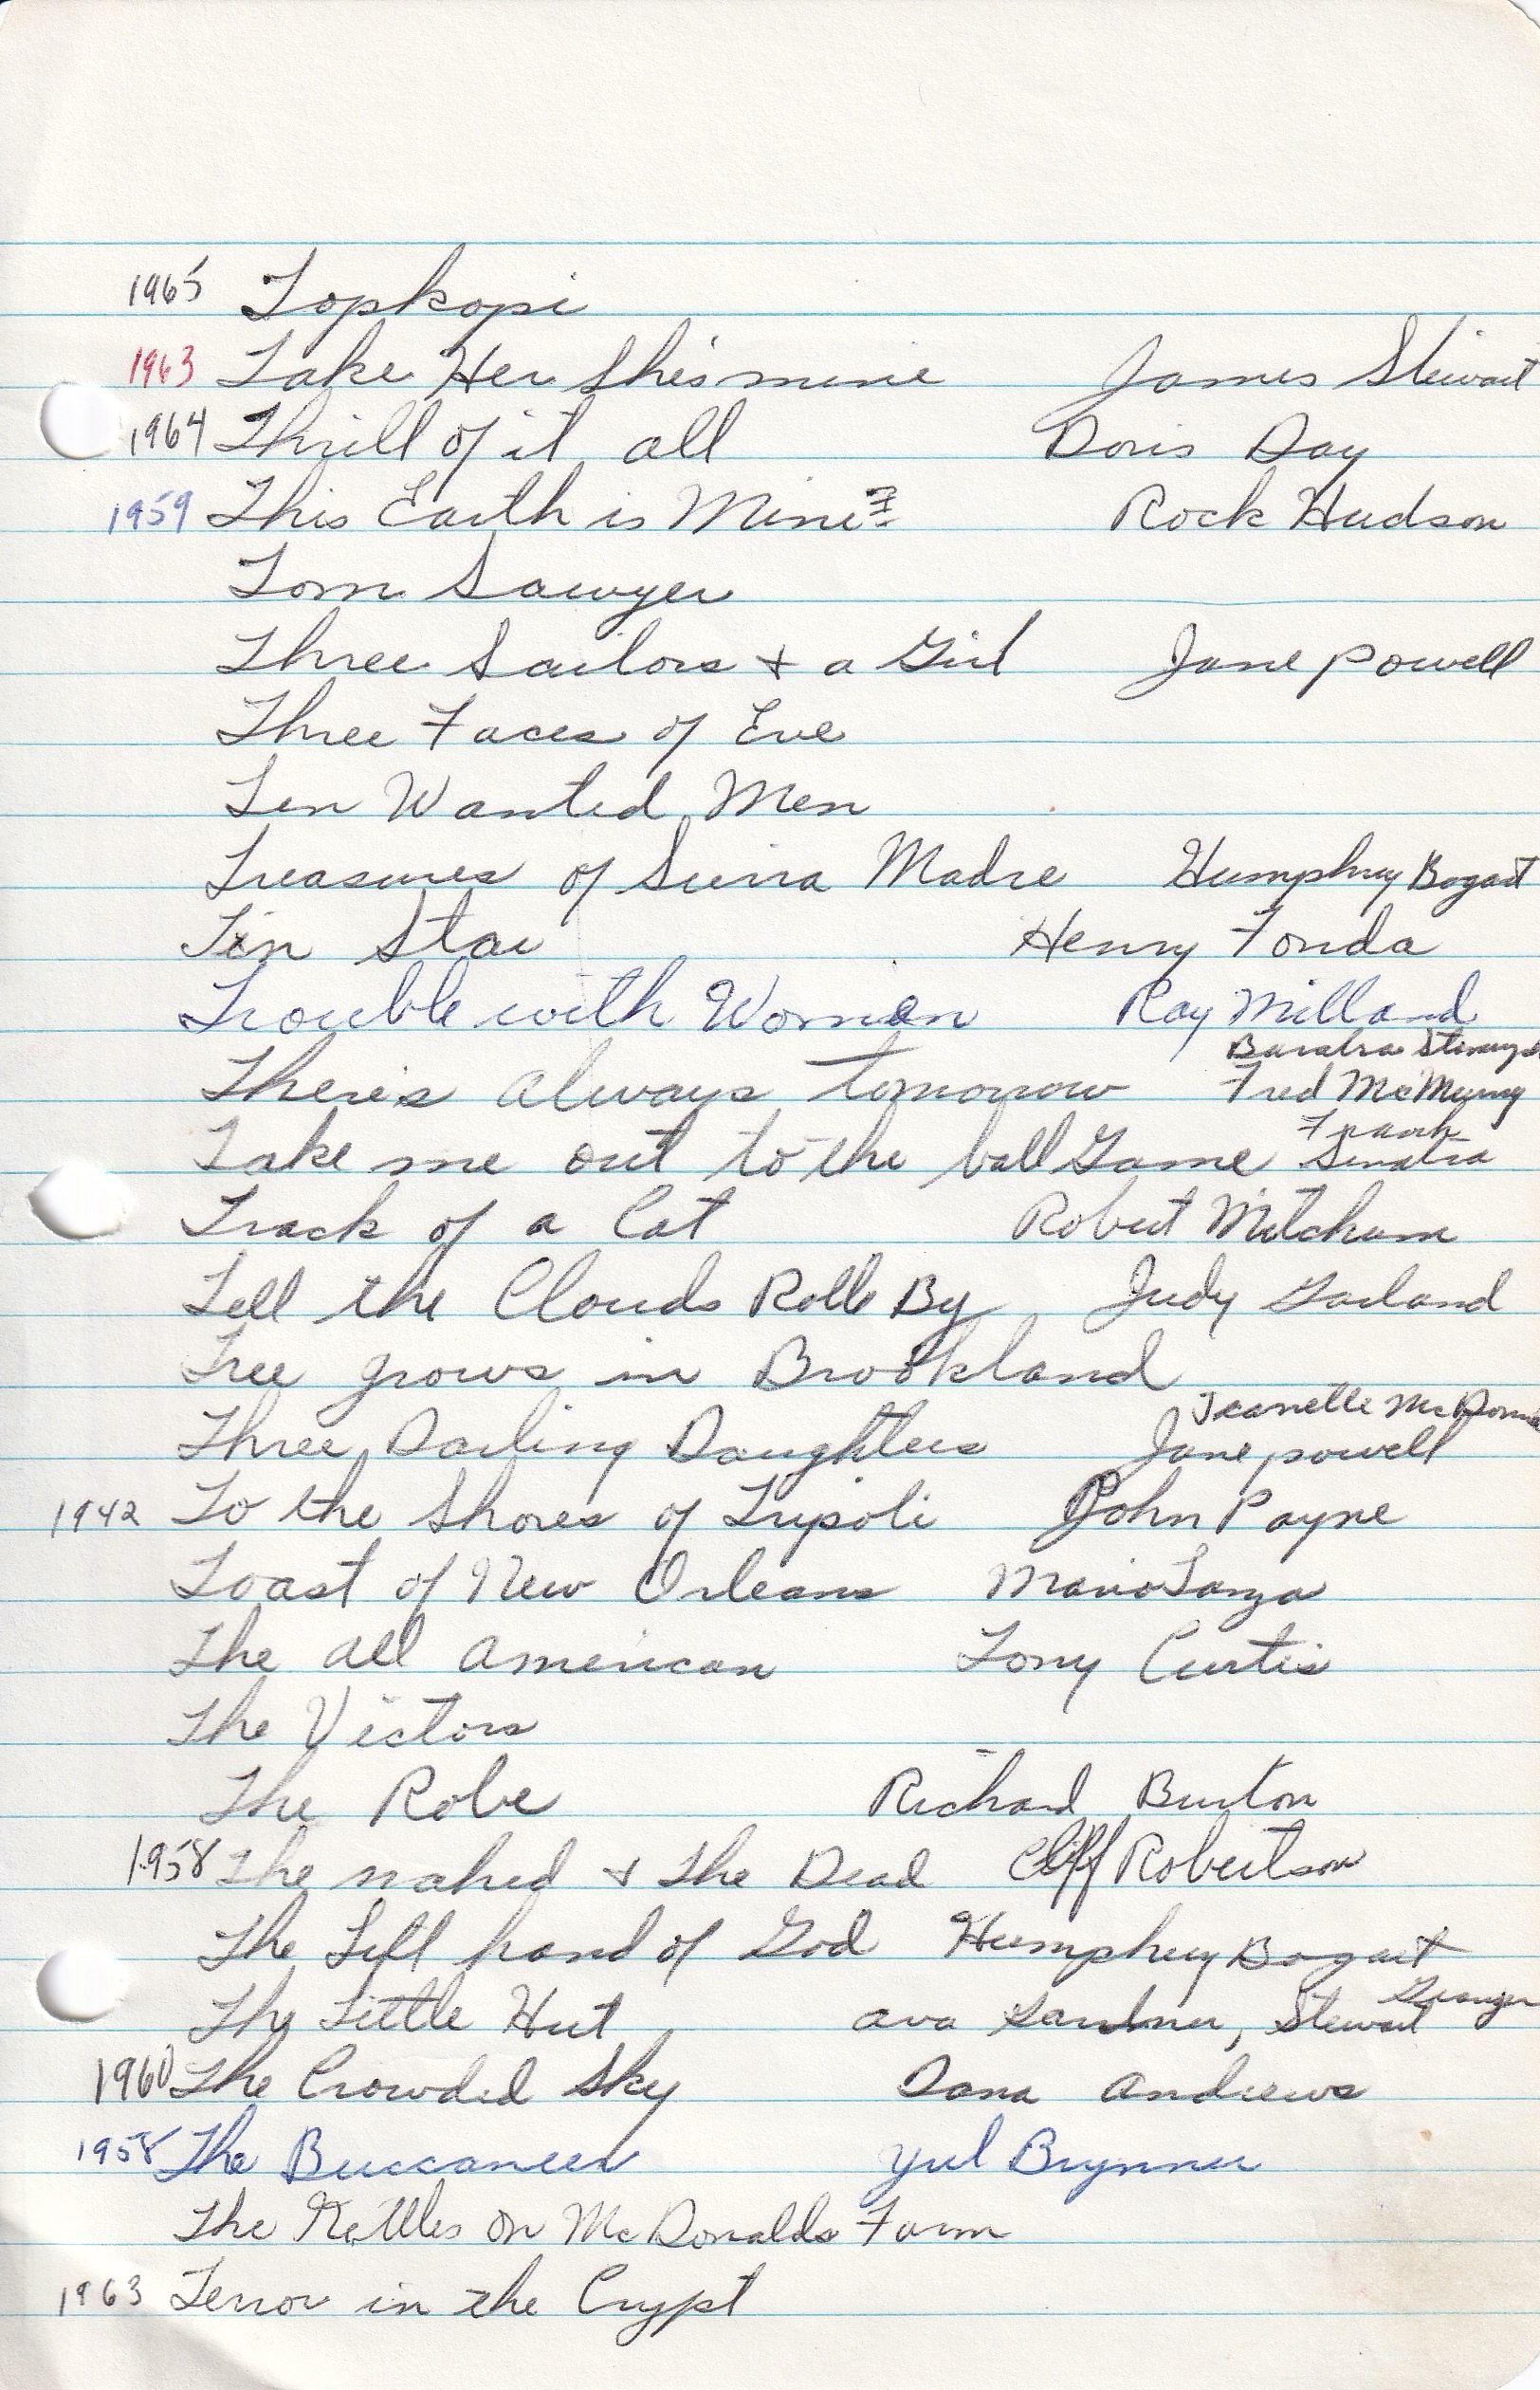 1965 Topkopi
1963 Take Her She's mine James Stewart
1964 Thrill of it all Doris Day
1959 This Earth is Mine Rock Hudson
Tom Sawyer
Three Sailors + a Girl Jane Powell
Three Faces of Eve
Ten Wanted Men
Treasures of Sierra Madre Humphrey Bogart
Tin Star Henry Fonda
Trouble with Women Ray Milland
Barabra
There's always tomorrow Fred McMurry
Frank
Take me out to the ball Game Sinatra
Track of a Cat Robert Mitchum
Tell the Clouds Rolle By Judy Garland
Tree grows in Brookland
Jeanette
Three Darling Daughters Jane powell
1942 To the Shores of Tripoli John Payne
Toast of New Orleans Mario Lanza
The all american Tony Curtis
The Victors
The Robe Richard Burton
1958 The naked + the Dead Cliff Robertson
The Left hand of God Humphrey Bogart
Granger
The Little Hut ava Gardner, Stewart
1960 The Crowded Sky Dana andrews
1958 The Buccaneer yul Brynner
The Kettles on McDonalds Farm
1963 Terror in the Crypt